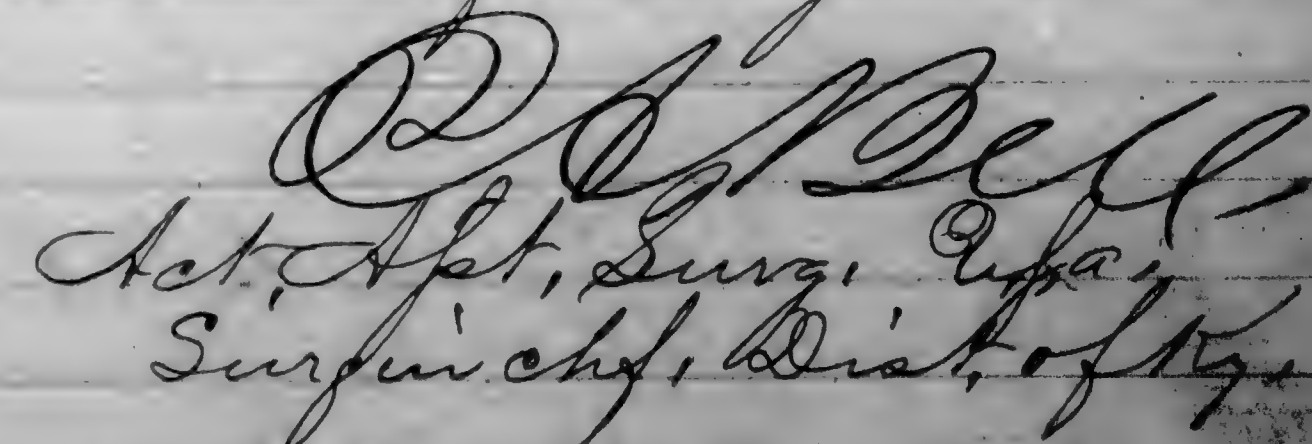 R A Bell,
Act, Asst, Surg, USA,
Surg in chf, Dist, of Ky,